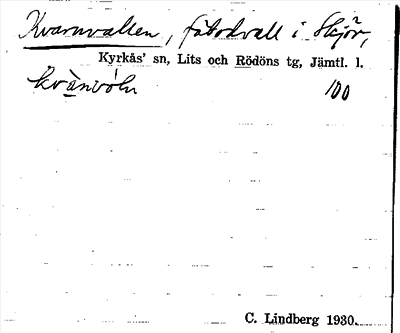 Kvarnvallen, fäbodvall i Skjör,
Kyrkås' sn, Lits och Rödöns tg, Jämtl. l.
kvànvóln 100
C. Lindberg 1930.